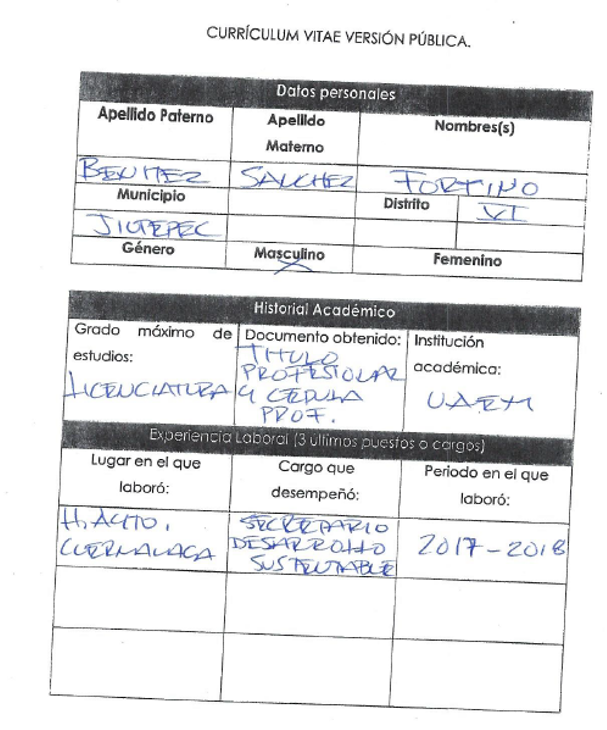 CURRÍCULUM VITAE VERSIÓN PÚBLICA.
Datos personales
Apellido Paterno Apellido Materno Nombres(s)
BENITEZ SANCHEZ FORTINO
Municipio Distrito VI
JIUTEPEC
Género Masculino Femenino
Historial Académico
Grado máximo de estudios: Documento obtenido: Institución académica:
LICENCIATURA TITULO PROFESIONAL Y CEDULA PROF. UAEM
Experiencia Laboral (3 últimos puestos o cargos)
Lugar en el que laboró: Cargo que desempeñó: Periodo en el que laboró:
H. AYTO. CUERNAVACA SECRETARIO DESARROLLO SUSTENTABLE 2017-2018